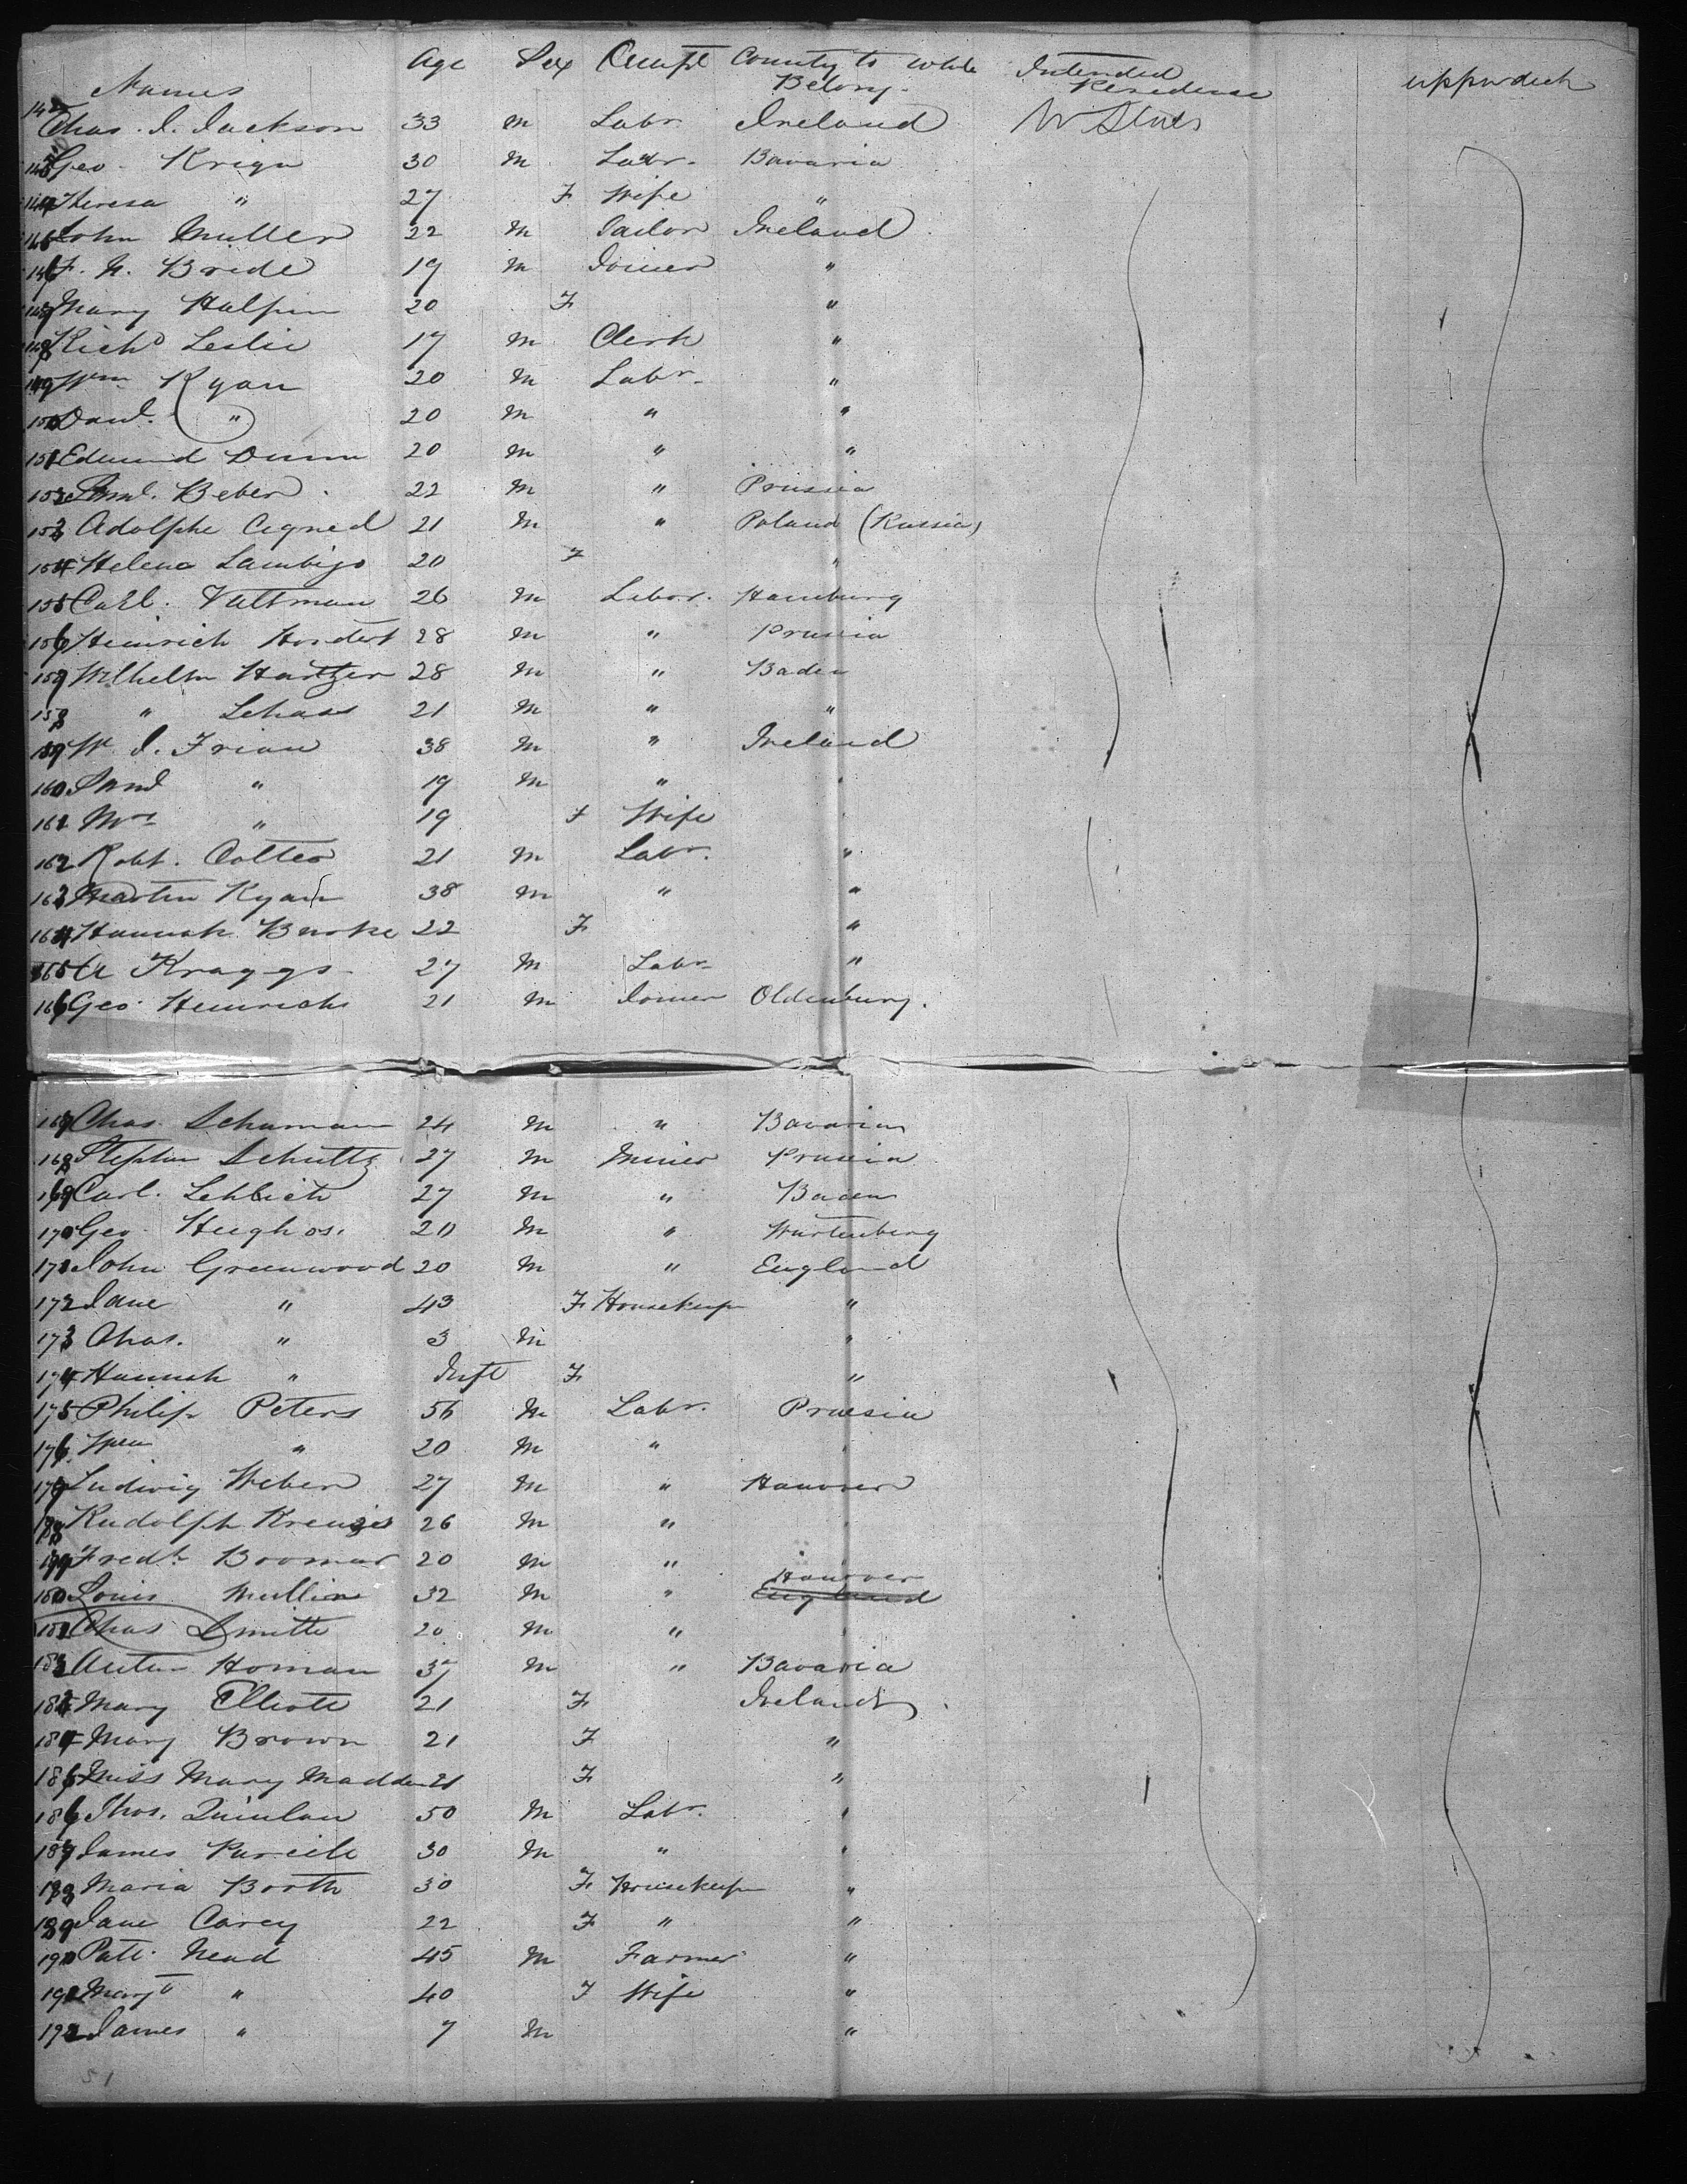 Names Age Sex Occupt Country to which Belong. Intended Residence upper deck
142 Chas. J. Jackson 33 M Labr. Ireland U States
143 Geo. 30 M Labr. Bavaria
144 Theresa " 27 F Wife "
145 John Muller 22 M Tailor Ireland
146 Bride 19 M Joiner "
147 Mary Halpin 20 F "
148 Richd Leslie 17 M Clerk "
149 Wm Ryan 20 M Labr. "
150 Danl. " 20 M " "
151 Edmund Dunn 20 M " "
152 Saml. Beber 22 M " Prussia
153 Adolphe 21 M " Poland (Russia)
154 Helena 20 F "
155 Carl. Valtman 26 M Labor. Hamburg
156 Heinrich 28 M " Prussia
157 Wilhelm Hartzer 28 M " Baden
158 " 21 M " "
159 W. J. Frian 38 M " Ireland
160 Saml " 19 M " "
161 Mrs " 19 F Wife
162 Robt. Cotter 21 M Labr. "
163 Martin Ryan 38 M " "
164 Hannah Burke 22 F "
165 A Kraggs 27 M Labr "
166 Geo. Heinrichs 21 M Joiner Oldenburg.
167 Chas. Schuman 24 M " Bavaria
168 Stephen Schultz 27 M Miner Prussia
169 Carl. 27 M " Baden
170 Geo. Hughos. 20 M " Wurtenberg
171 John Greenwood 20 M " England
172 Jane " 43 F Housekeepr "
173 Chas. " 3 M "
174 Hannah " Inft F "
175 Philip Peters 56 M Labr. Prussia
176 " 20 M " "
177 Ludwig Weber 27 M " Hanover
178 Rudolph 26 M " "
179 Fredk. Boomar 20 M " "
180 Louis Mullin 32 M " Hanover England
181 Chas Smitte 20 M " "
182 Anton Homan 37 M " Bavaria
183 Mary Elliott 21 F Ireland
184 Mary Brown 21 F "
185 Miss Mary Madden 21 F "
186 Thos. Quinlan 50 M Labr. "
187 James 30 M " "
188 Maria Booth 30 F Housekeepr "
189 Jane Carey 22 F " "
190 Patt. Nead 45 M Farmer "
191 Mary " 40 F Wife "
192 James " 7 M "
51